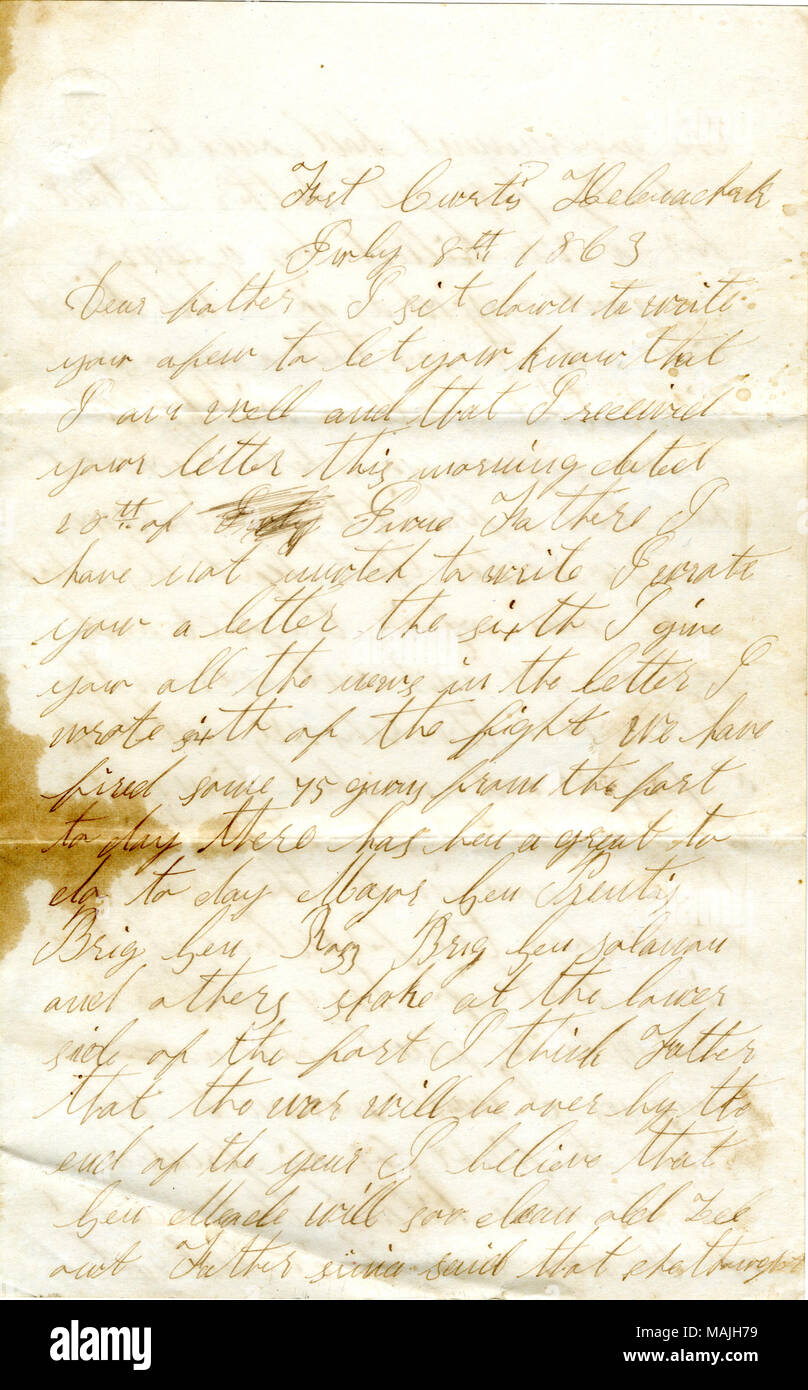 Fort Curtis Helena Ark
July 8th 1863
Dear father I sit down to write
your a few to let your know that
I am well and that I received
your letter this morning dated
of July June Father I
have not to write I wrote
your a letter the sixth I give
your all the news in the letter I
wrote sixth of the fight We have
fired some 75 guns from the fort
to day there has ben a great to
do to day Major Gen Prentis
Brig Gen Ross Brig Gen solaman
and others spoke at the lower
side of the fort I think Father
that the war will be over by the
end of the year I believe that
Gen Meade will soon clean old Lee
out Father said that she thought
alamy
alamy
Image ID: MAJH79
www.alamy.com